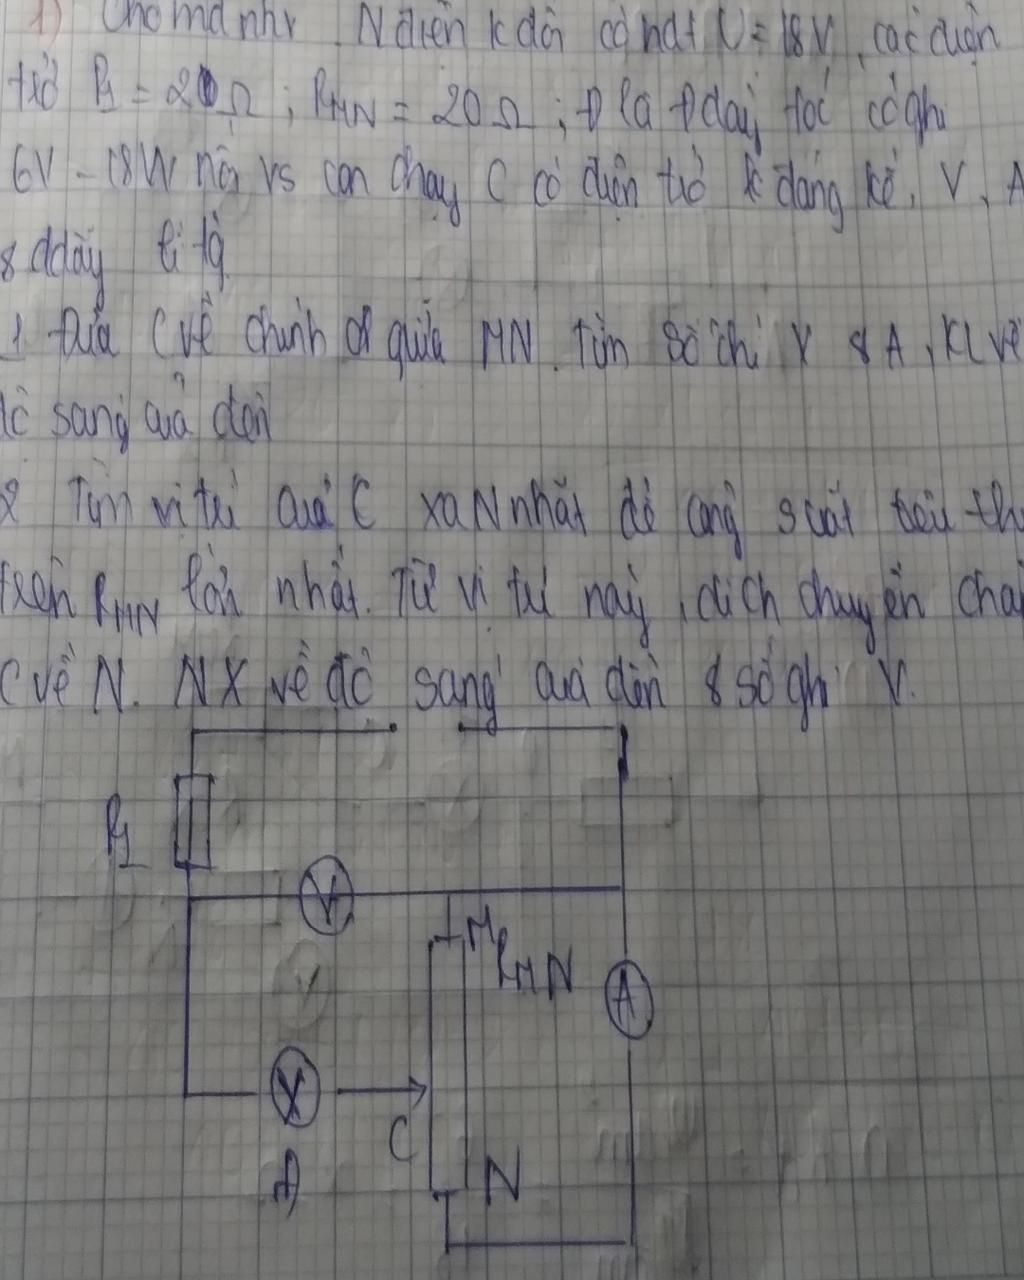 1) Cho mđ như N điện k đổi có hđt U = 18V, các điện
trở R1 = 20 Ω ; RMN = 20 Ω ; Đ là Đ dây tóc có ghi
6V - 18W nối vs con chạy C có điện trở k đáng kể, V, A
& ddây lí tg
1. Đưa C về chính giữa MN. Tìm số chỉ V & A, KL về
độ sáng quả đèn
2 Tìm vị trí quả C xa N nhất để công suất tiêu th
trên RMN lớn nhất. Từ vị trí này, dịch chuyển chạ
C về N. NX về độ sáng quả đèn & số ghi V.
R1
V
M
RMN
A
X
C
Đ
N